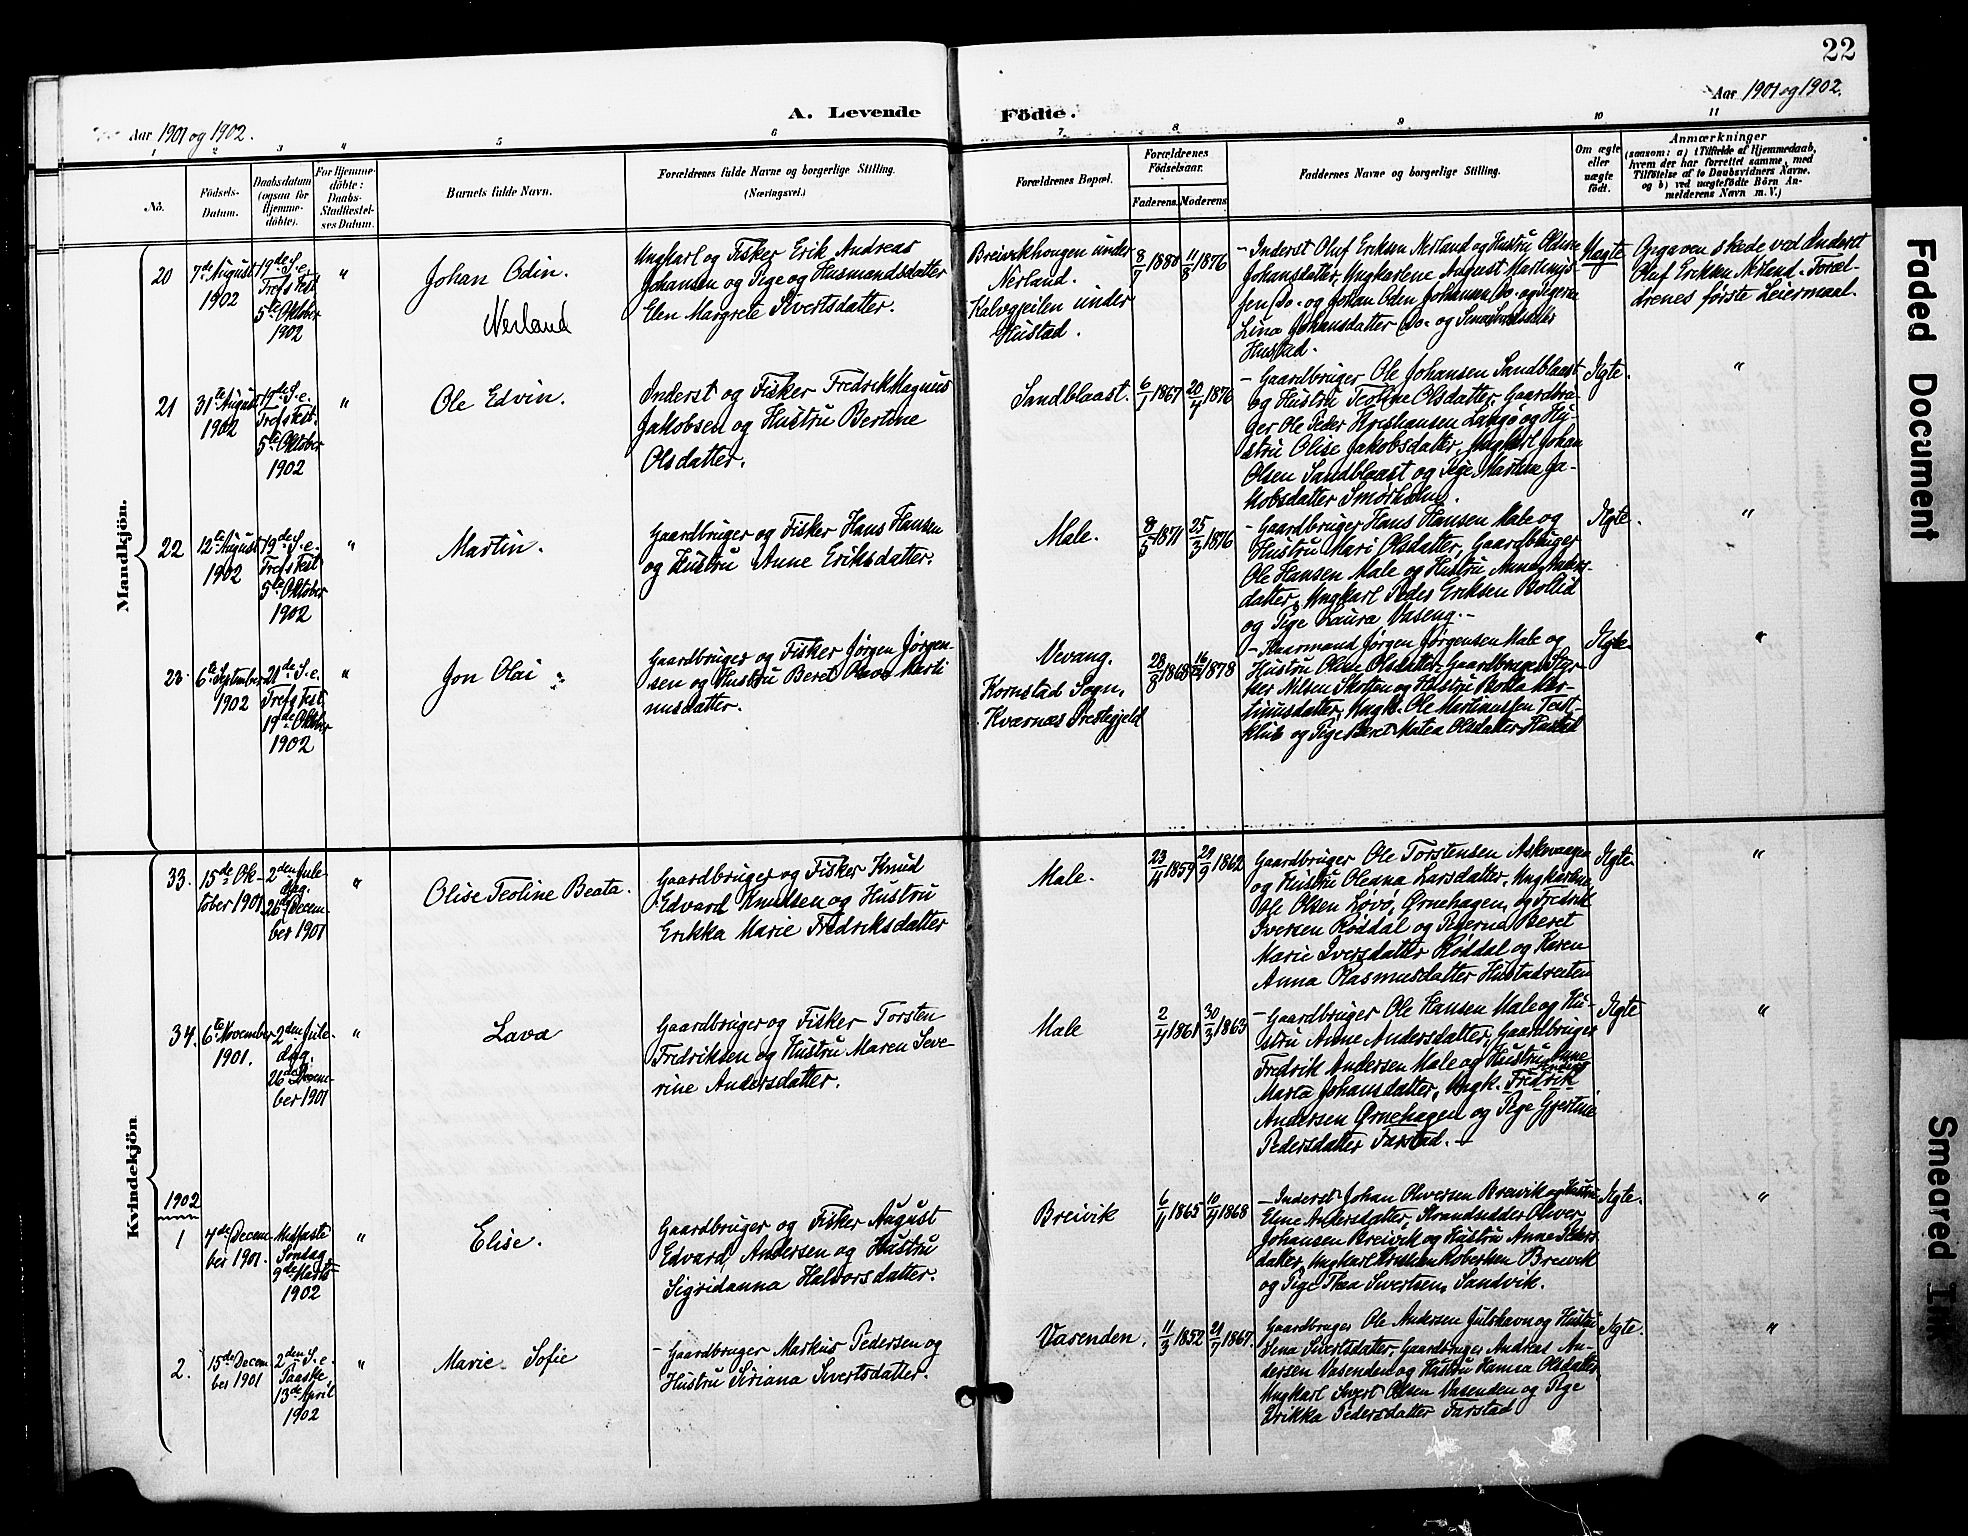 22
Aar 1901 og 1902.
A. Levende Födte.
Aar 1901 og 1902.
1 2 3 4 5 6 7 8 9 10 11
No.
Födsels-
Datum.
Daabsdatum
(ogsaa for
Hjemme-
döbte).
For Hjemme-
döbte:
Daabs-
Stadfæstel-
ses Datum.
Barnets fulde Navn.
Forældrenes fulde Navne og borgerlige Stilling.
(Næringsvei.)
Forældrenes Bopæl.
Forældrenes
Födselsaar.
Faderens. Moderens.
Faddernes Navne og borgerlige Stilling.
Om ægte
eller
uægte
födt.
Anmærkninger
(saasom: a) i Tilfælde af Hjemmedaab,
hvem der har forrettet samme, med
Tilföielse af to Daabsvidners Navne.
og b) ved uægtefödte Börn An-
melderens Navn m. V.)
Mandkjön.
20
7de August
1902
19de S. e.
Trefs Fest
5te Oktober
1902
"
Johan Odin.
Nerland
Ungkarl og Fisker Erik Andreas
Johansen og Pige og Husmandsdatter
Elen Margrete Sivertsdatter.
Breivikhougen under
Nerland.
Kalvgjeilen under
Hustad.
8/7 1880
11/8 1876
- Inderst Oluf Eriksen Nerland og Hustru Oldine
Johansdatter, Ungkarlene August Martinus-
sen Do. og Johan Odin Johansen Do. og Pigerne
Lina Johansdatter Do. og
Hustad.
Uægte
Opgaven skede ved Inderst
Oluf Eriksen Nerland. Foræl-
drenes første Leiermaal.
21
31te August
1902
19de S. e.
Trefs Fest.
5te Oktober
1902
"
Ole Edvin.
Inderst og Fisker Fredrik Magnus
Jakobsen og Hustru Bertine
Olsdatter.
Sandblaast.
6/1 1867
20/4 1876
- Gaardbruger Ole Johansen Sandblaast
og Hustru Teoline Olsdatter, Gaardbru-
ger Ole Peder Kristiansen Langø og Hu-
stru Olise Jakobsdatter, Ungkarl Johan
Olsen Sandblaast og Pige Martha Ja-
kobsdatter Smørholm.
Ægte.
"
22
12te August
1902
19de S. e.
Trefs Fest
5te Oktober
1902
"
Martin.
Gaardbruger og Fisker Hans Hansen
og Hustru Anne Eriksdatter.
Male.
8/5 1871
25/3 1876
- Gaardbruger Hans Hansen Male og
Hustru Mari Olsdatter, Gaardbruger
Ole Hansen Male og Hustru Anne Anders-
datter, Ungkarl Peder Eriksen Bollid
og Pige Laura Vaseng.-
Ægte.
"
23
6te September
1902
21de S. e.
Trefs Fest
19de Oktober
1902
"
Jon Olai
Gaardbruger og Fisker Jørgen Jørgen-
sen og Hustru Beret Olava Marti
nusdatter.
Vevang.
Kornstad Sogn,
Kværnæs Prestegjeld
28/8 1868
16/12 1878
- Kaarmand Jørgen Jørgensen Male og
Hustru Oline Olsdatter, Gaardbruger
Nilsen Skotten og Hustru Mar-
tinusdatter, Ungk. Ole Martinussen Teist-
klub og Pige Beret Matea Olsdatter Hustad
Ægte.
"
Kvindekjön
33.
15de Ok-
tober 1901
2den Jule
dag.
26de Decem-
ber 1901
"
Olise Teoline Beata.
Gaardbruger og Fisker Knud
Edvard Knudsen og Hustru
Erikka Marie Fredriksdatter
Male.
23/4 1859
29/9 1862
Gaardbruger Ole Torstensen Askevaagen
og Hustru Oleana Larsdatter, Ungkarlene
Ole Olsen Løvø, Ørnehagen, og Fredrik
Iversen Røddal og Pigerne Beret
Marie Iversdatter Røddal og Karen
Anna Rasmusdatter Hustadreiten
Ægte.
"
34.
6te November
1901.
2den Jule-
dag.
26de Decem-
ber 1901
"
Lava
Gaardbruger og Fisker Torsten
Fredriksen og Hustru Maren Seve-
rine Andersdatter.
Male
2/4 1861
30/3 1863
- Gaardbruger Ole Hansen Male og Hu-
stru Anne Andersdatter, Gaardbruger
Fredrik Andersen Male og Hustru Anne
Marta Johansdatter, Ungk. Fredrik
Andersen Ørnehagen og Pige Gjertine
Pedersdatter Farstad.-
Ægte
"
1902
1
4de Decem-
ber 1901.
Midfaste
Søndag
9de Marts
1902
"
Elise.
Gaardbruger og Fisker August
Edvard Andersen og Hustru
Sigridanna Halvorsdatter.
Breivik
6/4 1865
10/4 1868
- Inderst Johan Oliversen Breivik og Hustru
Eline Andersdatter, Strandsidder Oliver
Johansen Breivik og Hustru Anne Peders-
datter, Ungkarl Kristian Robertsen Breivik
og Pige Thea Sivertsen, Sandvik.
Ægte.
"
2.
15de Decem
ber 1901
2den S. e.
Paaske
13de April
1902
"
Marie Sofie
- Gaardbruger Markus Pedersen og
Hustru Siriana Sivertsdatter.
Vasenden.
11/3 1852
21/7 1867.
Gaardbruger Ole Andersen Julshavn og Hustru
Sina Sivertsdatter, Gaardbruger Andreas An-
dersen Vasenden og Hustru Hansa Olsdatter,
Ungkarl Sivert Olsen Vasenden og Pige
Erikka Pedersdatter Farstad
Ægte.
"
Faded Document
Smeared Ink